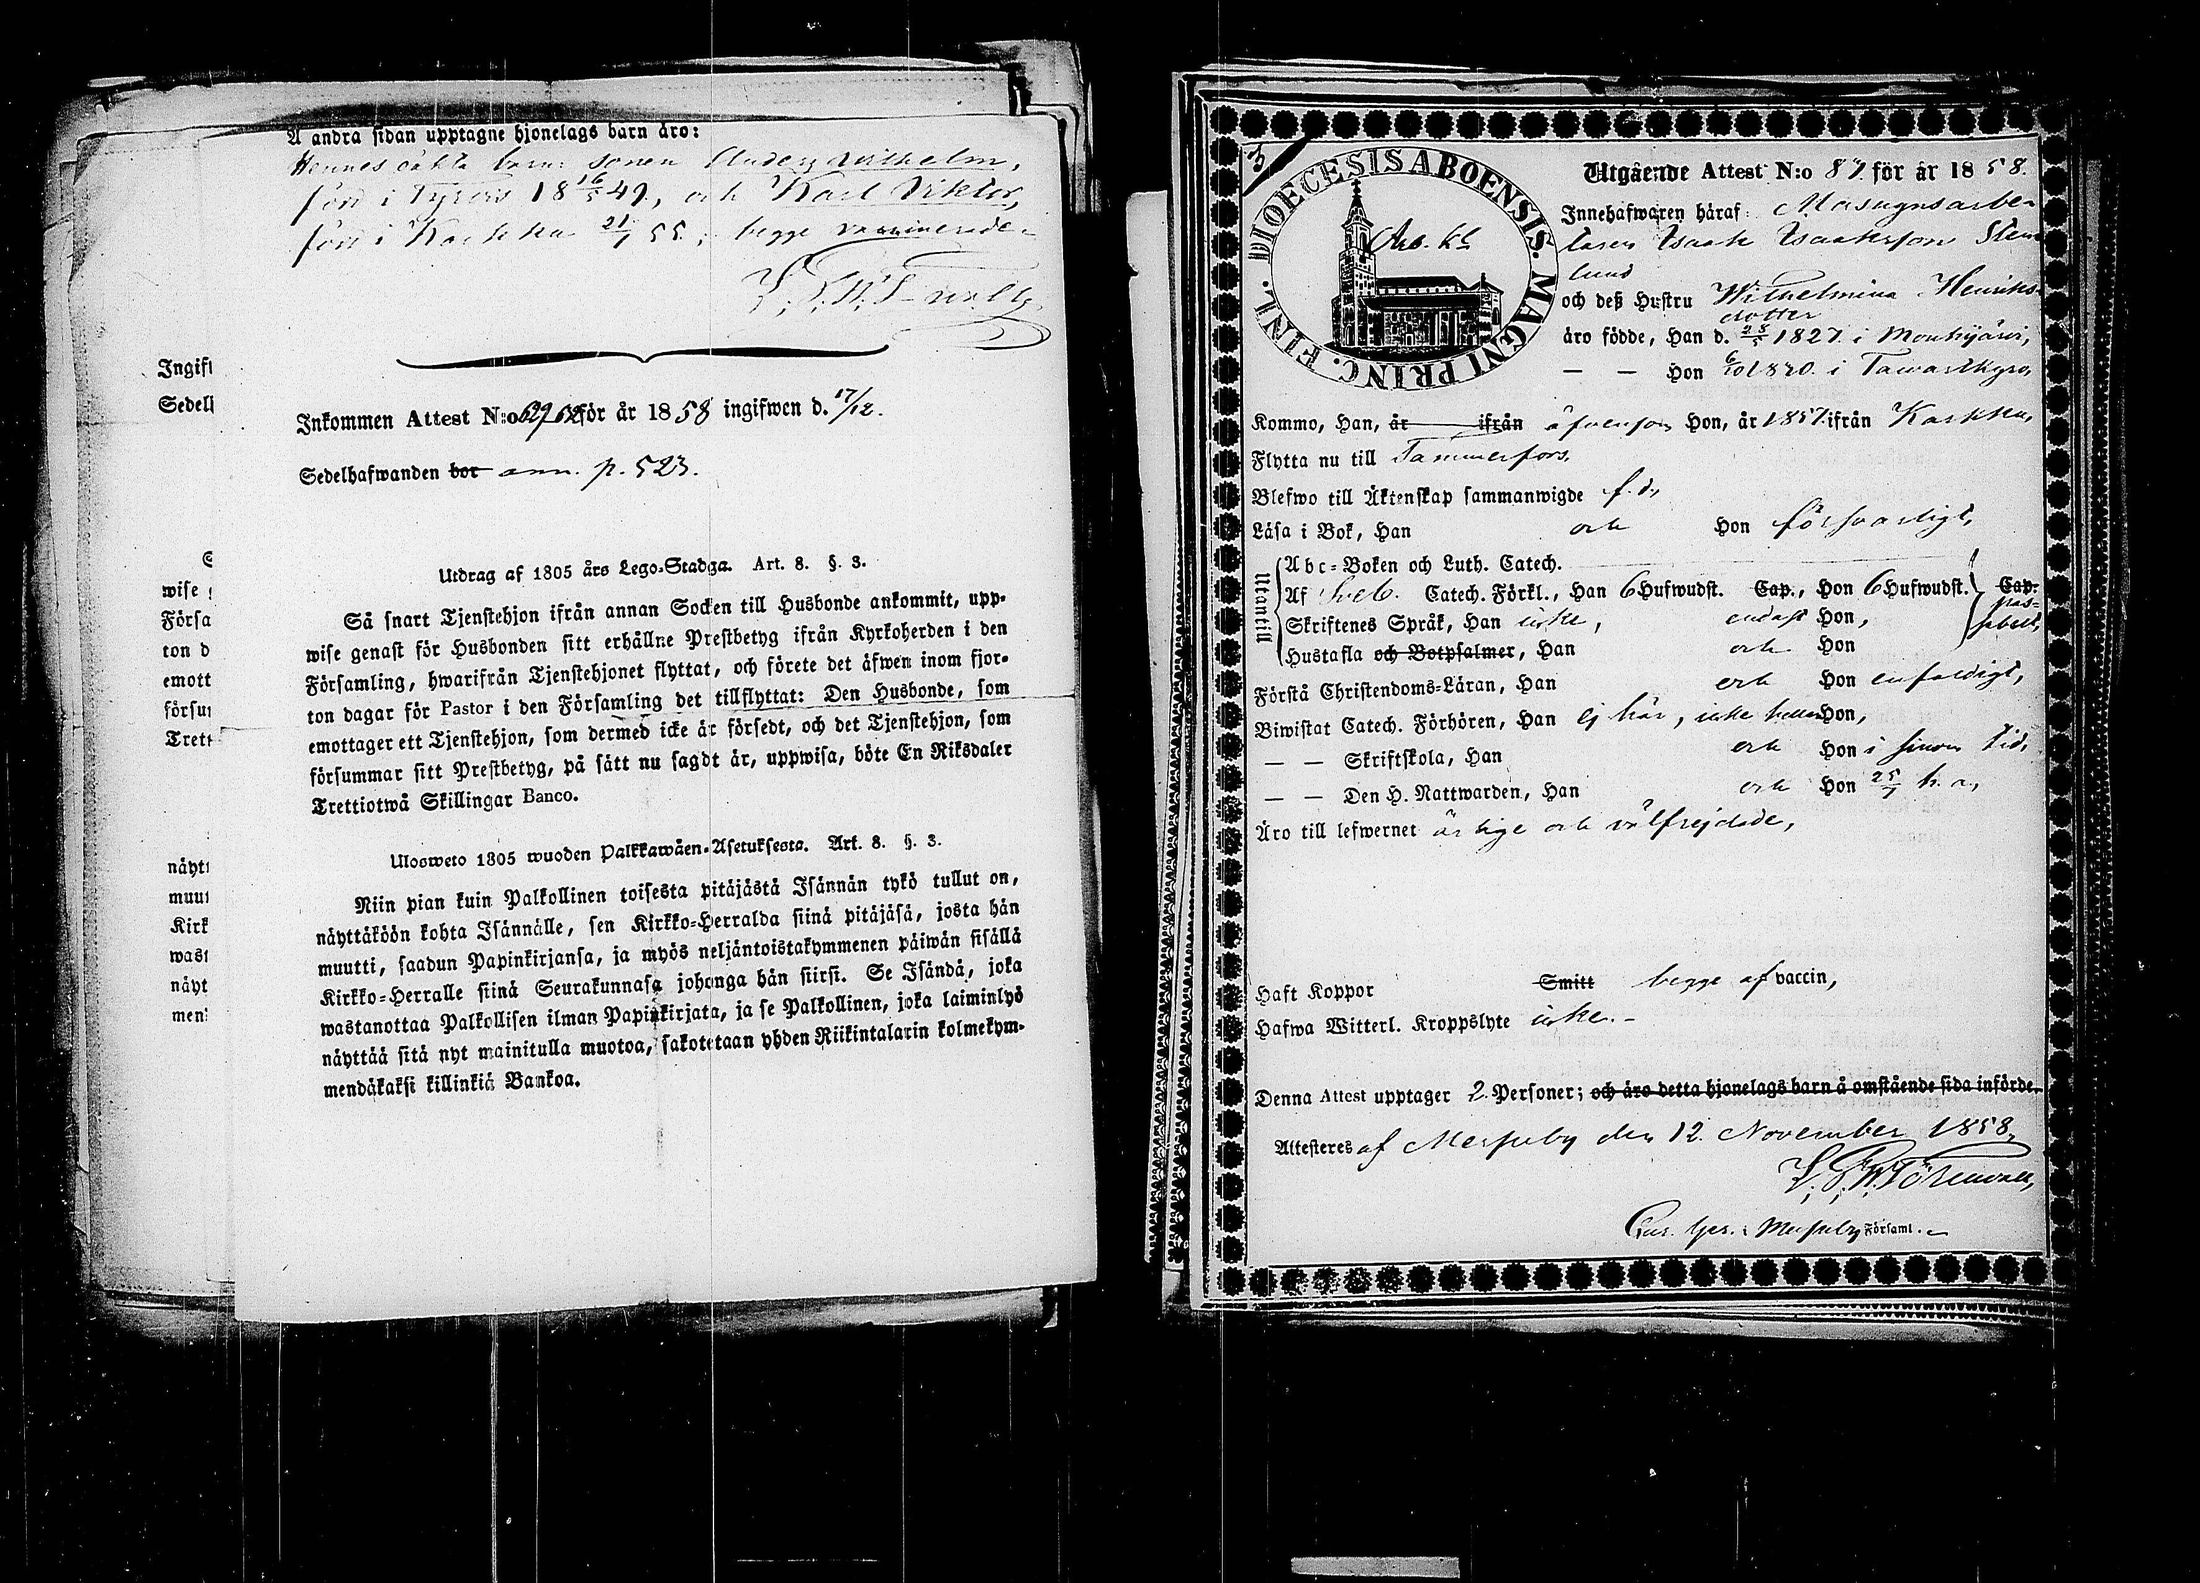 Å andra sidan upptagne hjonelags barn äro:
Hennes oäkta barn: sonen Anders Wilhelm,
född i Tyrvis 18 16/5 49, och Karl Viktor,
född i Karkku 21/1 55; begge vaccinerade.
Inkommen Attest N:o för år 1858 ingifwen d. 17/12.
Sedelhafwanden bor ann. p. 523.
Utdrag af 1805 års Lego-Stadga. Art. 8. §. 3.
Så snart Tjenstehjon ifrån annan Socken till Husbonde ankommit, upp-
wise genast för Husbonden sitt erhållne Prestbetyg ifrån Kyrkoherden i den
Församling, hwarifrån Tjenstehjonet flyttat, och förete det äfwen inom fjor-
ton dagar för Pastor i den Församling det tillflyttat: Den Husbonde, som
emottager ett Tjenstehjon, som dermed icke är försedt, och det Tjenstehjon, som
försummar sitt Prestbetyg, på sätt nu sagdt är, uppwisa, böte En Riksdaler
Trettiotwå Skillingar Banco.
Ulosweto 1805 wuoden Palkkawäen-Asetuksesta. Art. 8. §. 3.
Niin pian kuin Palkollinen toisesta pitäjästä Isännän tykö tullut on,
näyttäköön kohta Isännälle, sen Kirkko-Herralda siinä pitäjäsä, josta hän
muutti, saadun Papinkirjansa, ja myös neljäntoistakymmenen päiwän sisällä
Kirkko-Herralle siinä Seurakunnasa johonga hän siirsi. Se Isändä, joka
wastanottaa Palkollisen ilman Papinkirjata, ja se Palkollinen, joka laiminlyö
näyttää sitä nyt mainitulla muotoa, sakotetaan yhden Riikintalarin kolmekym-
mendäkaksi killinkiä Bankoa.
Ingift
Sedelh
wise
Försa
ton d
emott
försu
Trett
näytt
muut
Kirk
wast
näyt
men
DIOECESIS ABOENSIS. MAGNI PRINC. FINL.
Utgående Attest N:o 87 för år 1858.
Innehafwaren häraf: Masugnsarbe-
taren Isaak Isaaksson Sten-
lund
och deß Hustru Wilhelmina Henriks-
dotter
äro födde, Han d. 25/5 1827 i Mouhijärvi,
— — Hon 6/10 1820 i Tawastkyro,
Kommo, Han, är ifrån äfvensom Hon, år 1857 ifrån Karkku,
Flytta nu till Tammerfors.
Blefwo till Äktenskap sammanwigde f. d.,
Läsa i Bok, Han och Hon försvarligt,
Utantill
Abc-Boken och Luth. Catech.
Af Sveb. Catech. Förkl., Han 6 Hufwudst. Cap., Hon 6 Hufwudst. Cap.
Skriftenes Språk, Han icke, endast Hon, passabelt,
Hustafla och Botpsalmer, Han och Hon
Förstå Christendoms-Läran, Han och Hon enfaldigt,
Biwistat Catech. Förhören, Han ej här, icke heller Hon,
— — Skriftskola, Han och Hon i sinom tid,
— — Den H. Nattwarden, Han och Hon 25/7 h. a.,
Äro till lefwernet ärlige och välfrejdade,
Haft Koppor Smitt begge af vaccin,
Hafwa Witterl. Kroppslyte icke. –
Denna Attest upptager 2 Personer; och äro detta hjonelags barn å omstående sida införde.
Attesteres af Messuby den 12. November 1858.
i Messuby Församl.